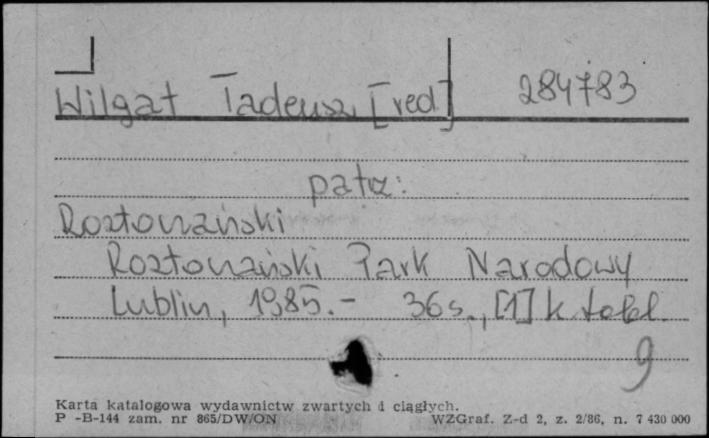 Wilgat Tadeusz [red] 284783
patrz:
Roztoczański
Roztoczański Park Narodowy
Lublin, 1985.- 36 s., [1] k tabl.
9
Karta katalogowa wydawnictw zwartych i ciągłych.
P -B-144 zam. nr 865/DW/ON WZGraf. Z-d 2, z. 2/86, n. 7 430 000